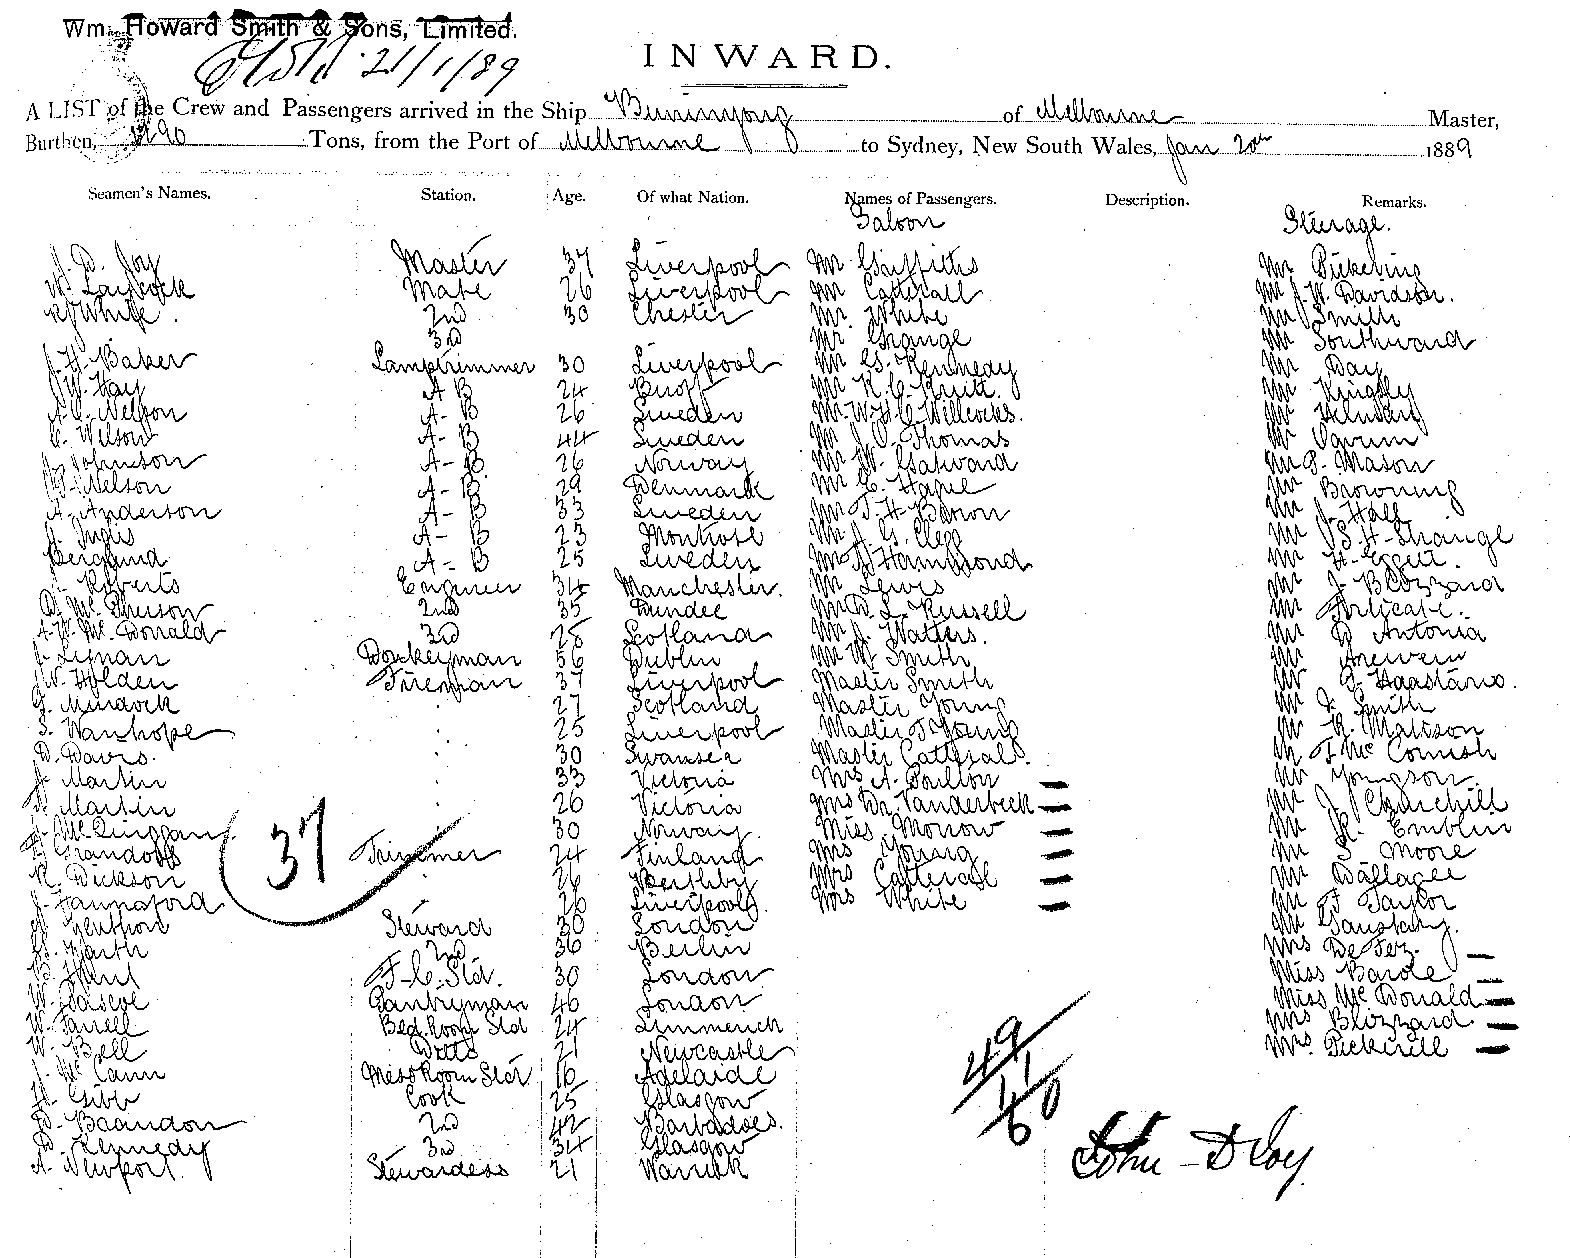 Wm. Howard Smith & Sons, Limited.
21/1/89
INWARD.
A LIST of the Crew and Passengers arrived in the Ship Buninyong of Melbourne Master,
Burthen, Tons, from the Port of Melbourne to Sydney, New South Wales, Jan 20th 1889
Seamen's Names. Station. Age. Of what Nation. Names of Passengers. Description. Remarks.
Saloon Steerage.
J. D. Joy Master 37 Liverpool Mr Griffiths Mr Pickering
W. Laybock Mate 26 Liverpool Mr Catterall Mr J. W. Davidson.
White. 2nd 30 Chester Mr. White Mr Smith
3rd Mr. Grange Mr Southward
J. H. Baker Lamptrimmer 30 Liverpool Mr G. Kennedy Mr Day
J. W. Hay A B 24 Mr R. C. Mr Kingsly
A. C. Nelson A-B 26 Sweden Mr. W. H. C. Willcocks. Mr
C. Wilson A-B 44 Sweden Mr J. O. Thomas Mr Varum
J. Johnson A-B 26 Norway Mr W. Gatward Mr P. Mason
Nelson A-B 29 Denmark Mr C. Hagul Mr Browning
A. Anderson A-B 33 Sweden Mr T. H. Baron Mr J. Hall
J. Inglis A-B 23 Montrose Mr J. G. Clegg Mr S. H. Strange
Berglund A-B 25 Sweden Mr Hammond Mr H.
J. Roberts Engineer 34 Manchester. Mr Lewis Mr J. Blizzard
D. Mc 2nd 35 Dundee Mr D. L. Russell Mr
A. W. Mc Donald 3rd 28 Scotland Mr J. Watters. Mr D Antonia
J. Lynan Donkeyman 56 Dublin Mr W. Smith Mr
W. Holden Fireman 37 Liverpool Master Smith Mr
G. Murdock 27 Scotland Master Young Mr J. Smith
S. Wanhope 25 Liverpool Master F Young Mr R. Matison
D. Davis. 30 Swansea Master Catterall. Mr F. Mc Cornish
J. Martin 33 Victoria Mrs A. Poulton Mr Youngson.
J. Martin 26 Victoria Mrs Dr. Vanderbeek Mr J. Churchill
30 Norway. Miss Morrow Mr R. Emblin
37
Trimmer 24 Finland Mrs Young Mr S. Moore
R. Dickson 26 Mrs Catterall Mr
J. Hannaford 26 Liverpool Mrs White Mr F Taylor
Steward 30 London Mr
2nd 36 Berlin Mrs De Fez.
Hunt F-C. Std. 30 London Miss
W. Pascoe Pantryman 46 London Miss Mc Donald
W. Farrell Bed Room Std 24 Limmerick Mrs Blizzard
W. Bell Ditto 21 Newcastle Mrs. Pickerill
J. Mc Cann Mess Room Std 16 Adelaide
H. Gibb Cook 25 Glasgow
D. Baandon 2nd 42 Barbadoes.
D. Kennedy 3rd 34 Glasgow
A. Newport Stewardess 21 Warwick
49
11
60
John D Joy